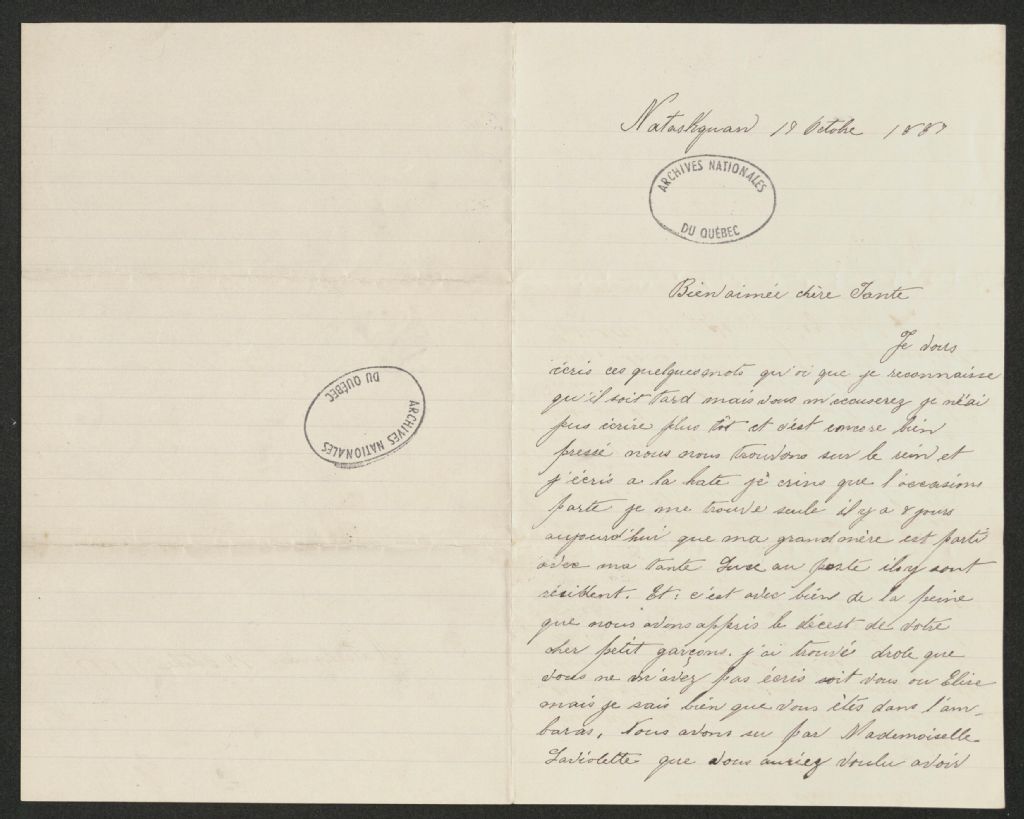 Nataskquan 18 Octobre 188
ARCHIVES NATIONALES
DU QUÉBEC
Bien aimée chère Tante
Je vous
écris ces quelques mots qu'oi que je reconnaisse
qu'il soit tard mais vous m'ecouserez je n'éai
pus écrire plus tôt et c'ést encore bien
pressé nous nous trouvons sur le rein et
j'écris a la hate je crins que l'occasions
parte je me trouve seule il y a 8 jours
aujourd'hui que ma grand mère est parti
avec ma tante Luce au poste ils y sont
résittent. Et : c'est avec bién de la peine
que nous avons appris le décest de votre
cher petit garçons. j'ai trouvé drole que
vous ne m'avéz pas écris soit vous ou Elise
mais je sais bién que vous êtes dans l'am-
baras, Nous avons su par Mademoiselle
Laviolette que vous auriez voulu avoir
ARCHIVES NATIONALES
DU QUÉBEC